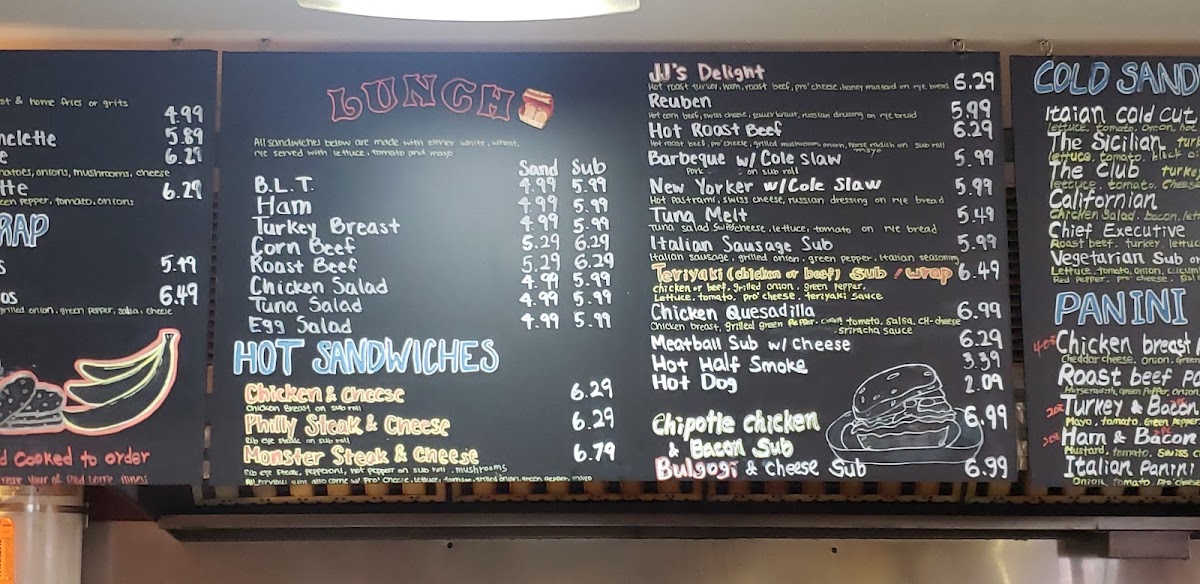 st & home fries or grits
4.99
nelette 5.89
e 6.29
natoes, onions, mushrooms, cheese
tte 6.29
een pepper, tomato, onions
RAP
s 5.49
os 6.49
grilled onion, green pepper, salsa, cheese
d cooked to order
LUNCH
All sandwiches below are made with either white, wheat,
rye served with lettuce, tomato and mayo
Sand Sub
B.L.T. 4.99 5.99
Ham 4.99 5.99
Turkey Breast 4.99 5.99
Corn Beef 5.29 6.29
Roast Beef 5.29 6.29
Chicken Salad 4.99 5.99
Tuna Salad 4.99 5.99
Egg Salad 4.99 5.99
HOT SANDWICHES
Chicken & Cheese 6.29
Chicken Breast on sub roll
Philly Steak & Cheese 6.29
Rib eye steak on sub roll
Monster Steak & Cheese 6.79
Rib eye steak, pepperoni, hot pepper on sub roll. mushrooms
subs also come w/ pro' cheese, lettuce, tomato, grilled onion, green pepper, mayo
JJ's Delight 6.29
Hot roast turkey, ham, roast beef, pro' cheese, honey mustard on rye bread
Reuben 5.99
Hot corn beef, swiss cheese, sauer kraut, russian dressing on rye bread
Hot Roast Beef 6.29
Hot roast beef, pro' cheese, grilled mushroom, onion, horse radish mayo on sub roll
Barbeque w/ Cole slaw 5.99
Pork on sub roll
New Yorker w/Cole Slaw 5.99
Hot Pastrami, swiss cheese, russian dressing on rye bread
Tuna Melt 5.49
Tuna salad swiss cheese, lettuce, tomato on rye bread
Italian Sausage Sub 5.99
Italian sausage, grilled onion, green pepper, Italian seasoning
Teriyaki (chicken or beef) sub / wrap 6.49
chicken or beef, grilled onion, green pepper,
Lettuce, tomato, pro' cheese, teriyaki sauce
Chicken Quesadilla 6.99
Chicken breast, grilled green pepper, onion, tomato, salsa, CH-cheese
sriracha sauce
Meatball Sub w/ Cheese 6.29
Hot Half Smoke 3.39
Hot Dog 2.09
Chipotle chicken 6.99
& Bacon Sub
Bulgogi & cheese Sub 6.99
COLD SAND
Itaian cold cut
lettuce, tomato, onion, hot
The Sicilian turk
lettuce, tomato, black
The Club turkey
lettuce, tomato, cheese
Californian
Chicken Salad, bacon, let
Chief Executive
Roast beef, turkey, lettuc
Vegetarian Sub or
Lettuce, tomato, onion, cucum
Red Pepper, pro' cheese,
PANINI
Chicken breast
Cheddar cheese, onion, Green
Roast beef Pa
Horseradish, Green Pepper, onion
Turkey & Bacon
Mayo, tomato, Green Pepper
Ham & Bacon
Mustard, tomato, swiss c
Italian Panini
Onion, tomato, pro' chees